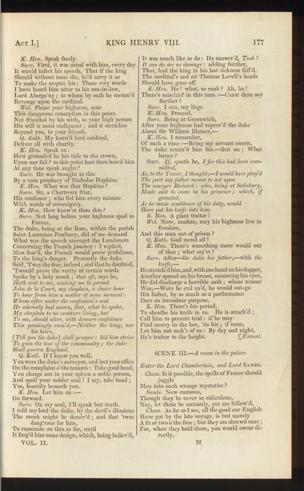 ACT I.] KING HENRY VIII. 177
K. Hen. Speak freely.
Surv. First, it was usual with him, every day
It would infect his speech, That if the king
Should without issue die, he'd carry it so
To make the sceptre his: These very words
I have heard him utter to his son-in-law,
Lord Aberga'ny; to whom by oath he menac'd
Revenge upon the cardinal.
Wol. Please your highness, note
This dangerous conception in this point.
Not friended by his wish, to your high person
His will is most malignant; and it stretches
Beyond you, to your friends.
Q. Kath. My learn'd lord cardinal,
Deliver all with charity.
K. Hen. Speak on:
How grounded he his title to the crown,
Upon our fail? to this point hast thou heard him
At any time speak aught?
Surv. He was brought to this
By a vain prophecy of Nicholas Hopkins.
K. Hen. What was that Hopkins?
Surv. Sir, a Chartreux friar,
His confessor; who fed him every minute
With words of sovereignty.
K. Hen. How know'st thou this?
Surv. Not long before your highness sped to
France,
The duke, being at the Rose, within the parish
Saint Lawrence Poultney, did of me demand
What was the speech amongst the Londoners
Concerning the French journey: I replied,
Men fear'd, the French would prove perfidious,
To the king's danger. Presently the duke
Said, 'Twas the fear, indeed; and that he doubted,
'Twould prove the verity of certain words
Spoke by a holy monk; that oft, says he,
Hath sent to me, wishing me to permit
John de la Court, my chaplain, a choice hour
To hear from him a matter of some moment:
Whom after under the confession's seal
He solemnly had sworn, that, what he spoke,
My chaplain to no creature living, but
To me, should utter, with demure confidence
This pausingly ensu'd,—Neither the king, nor
his heirs,
(Tell you the duke) shall prosper: bid him strive
To gain the love of the commonalty; the duke
Shall govern England.
Q. Kath. If I know you well,
You were the duke's surveyor, and lost your office
On the complaint o'the tenants: Take good heed,
You charge not in your spleen a noble person,
And spoil your nobler soul! I say, take heed;
Yes, heartily beseech you.
K. Hen. Let him on:—
Go forward.
Surv. On my soul, I'll speak but truth.
I told my lord the duke, by the devil's illusions
The monk might be deceiv'd; and that 'twas
dang'rous for him,
To ruminate on this so far, until
It forg'd him some design, which, being believ'd,
VOL. II.
It was much like to do: He answer'd, Tush!
It can do me no damage: adding further,
That, had the king in his last sickness fail'd,
The cardinal's and sir Thomas Lovell's heads
Should have gone off.
K. Hen. Ha! what, so rank? Ah, ha!
There's mischief in this man:—Canst thou say
further?
Surv. I can, my liege.
K. Hen. Proceed.
Surv. Being at Greenwich,
After your highness had reprov'd the duke
About Sir William Blomer,—
K. Hen. I remember,
Of such a time:—Being my servant sworn,
The duke retain'd him his.—But on; What
hence?
Surv. If, quoth he, I for this had been com-
mitted,
As, to the Tower, I thought,—I would have play'd
The part my father meant to act upon
The usurper Richard: who, being at Salisbury,
Made suit to come in his presence; which, if
granted,
As he made semblance of his duty, would
Have put his knife into him.
K. Hen. A giant traitor!
Wol. Now, madam, may his highness live in
freedom,
And this man out of prison?
Q. Kath. God mend all!
K. Hen. There's something more would out
of thee; What say'st?
Surv. After—the duke his father,—with the
knife,—
He stretch'd him, and, with one hand on his dagger,
Another spread on his breast, mounting his eyes,
He did discharge a horrible oath; whose tenour
Was,—Were he evil us'd, he would out-go
His father, by as much as a performance
Does an irresolute purpose.
K. Hen. There's his period,
To sheathe his knife in us. He is attach'd;
Call him to present trial: if he may
Find mercy in the law, 'tis his; if none,
Let him not seek't of us: By day and night,
He's traitor to the height. [Exeunt.
SCENE III.—A room in the palace.
Enter the Lord Chamberlain, and Lord SANDS.
Cham. Is it possible, the spells of France should
juggle
Men into such strange mysteries?
Sands. New customs,
Though they be never so ridiculous,
Nay, let them be unmanly, yet are follow'd.
Cham. As far as I see, all the good our English
Have got by the late voyage, is but merely
A fit or two o'the face; but they are shrewd ones;
For, when they hold them, you would swear di-
rectly,
M